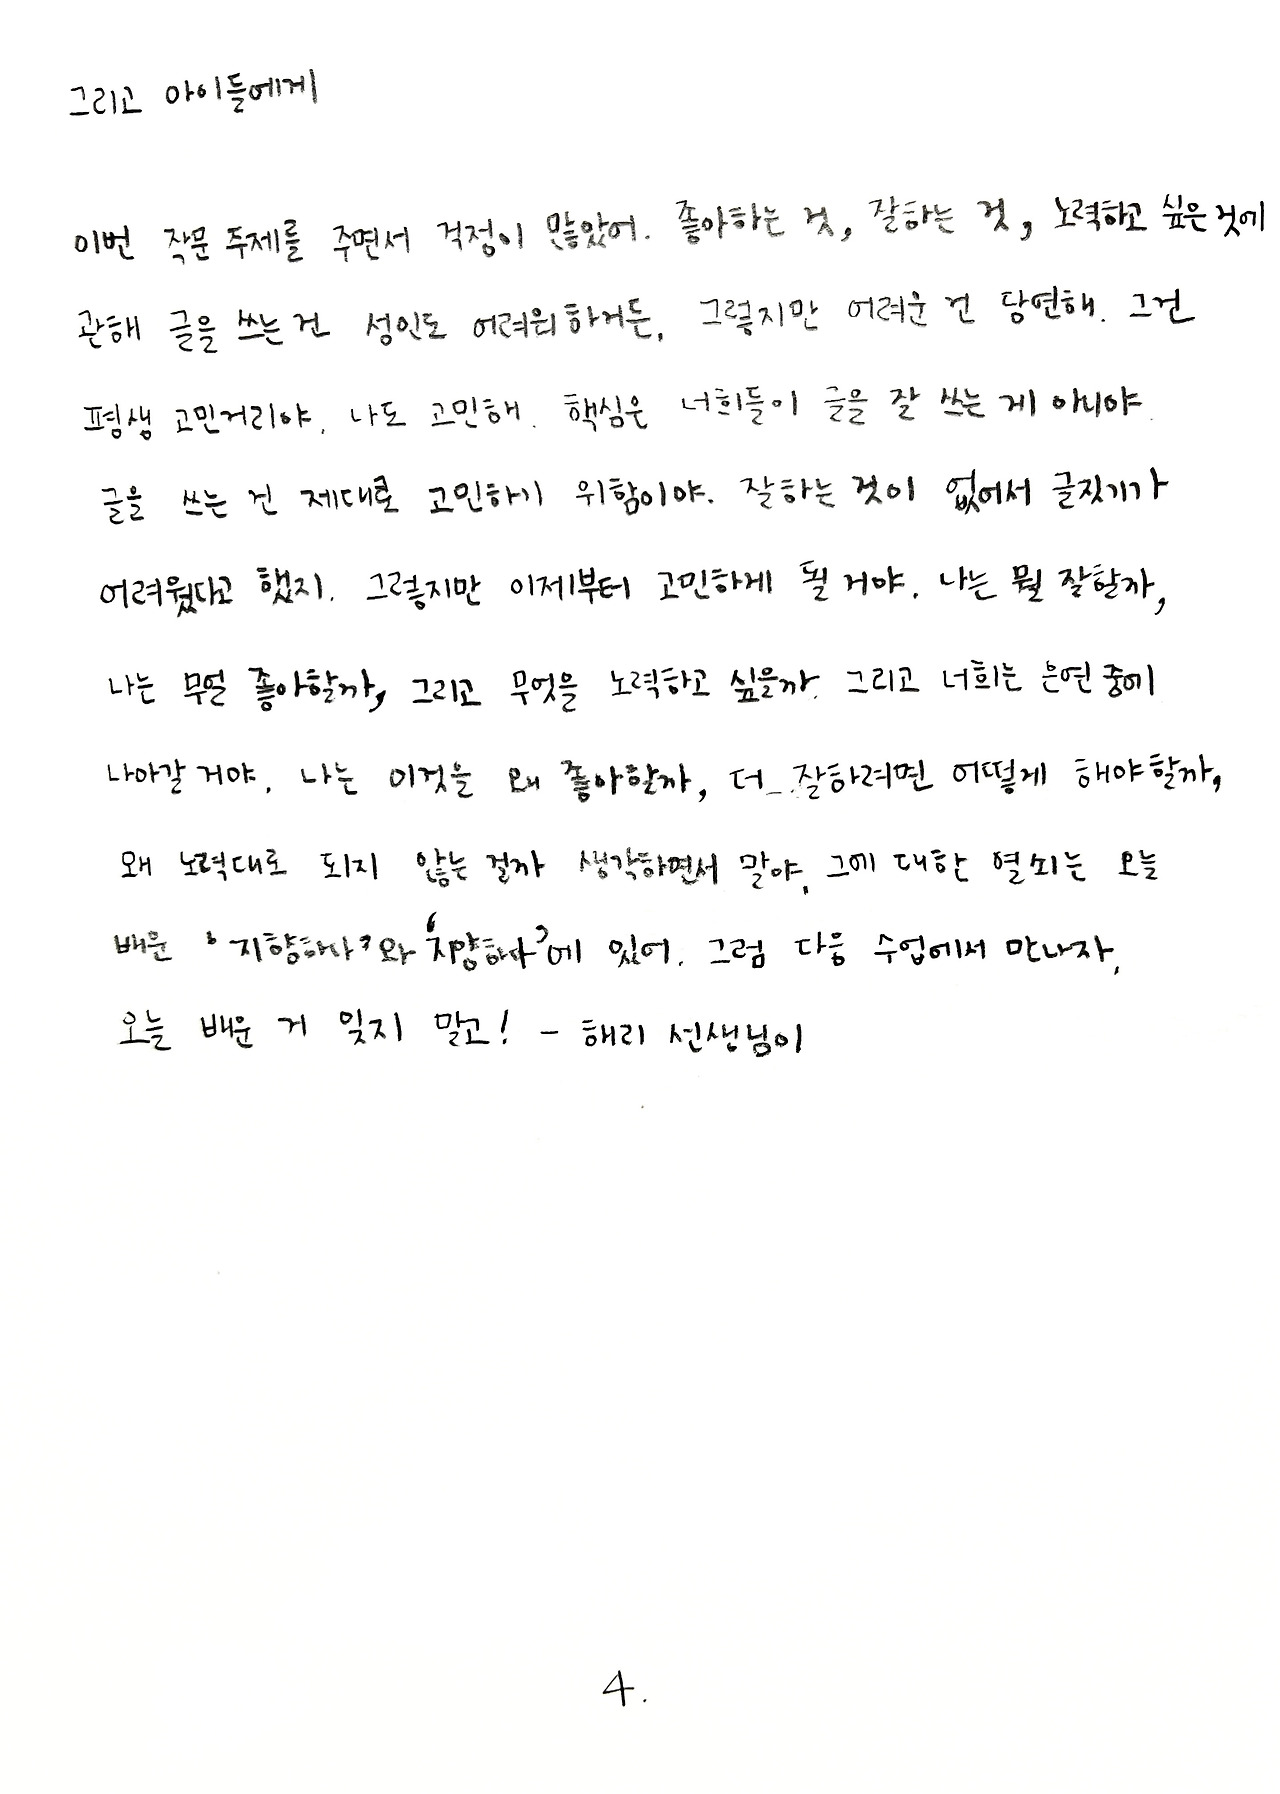 그리고 아이들에게
이번 작문 주제를 주면서 걱정이 많았어. 좋아하는 것, 잘하는 것, 노력하고 싶은 것에
관해 글을 쓰는 건 성인도 어려워하거든. 그렇지만 어려운 건 당연해. 그건
평생 고민거리야. 나도 고민해. 핵심은 너희들이 글을 잘 쓰는 게 아니야.
글을 쓰는 건 제대로 고민하기 위함이야. 잘하는 것이 없어서 글짓기가
어려웠다고 했지. 그렇지만 이제부터 고민하게 될 거야. 나는 뭘 잘할까,
나는 무얼 좋아할까, 그리고 무엇을 노력하고 싶을까. 그리고 너희는 은연 중에
나아갈 거야. 나는 이것을 왜 좋아할까, 더 잘하려면 어떻게 해야할까,
왜 노력대로 되지 않는 걸까 생각하면서 말야. 그에 대한 열쇠는 오늘
배운 '지향하다'와 '지양하다'에 있어. 그럼 다음 수업에서 만나자.
오늘 배운 거 잊지 말고! - 해리 선생님이
4.